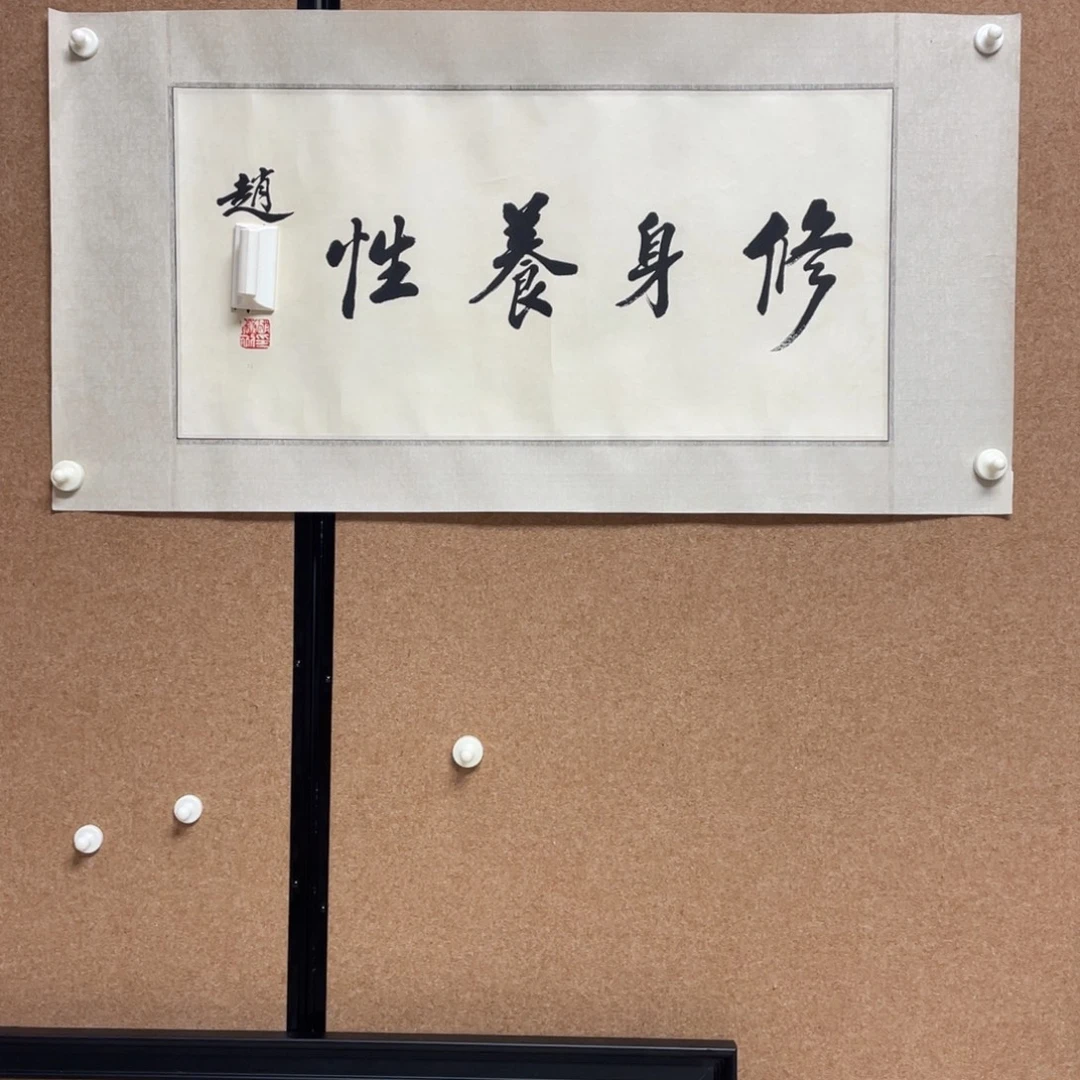 修身養性
趙